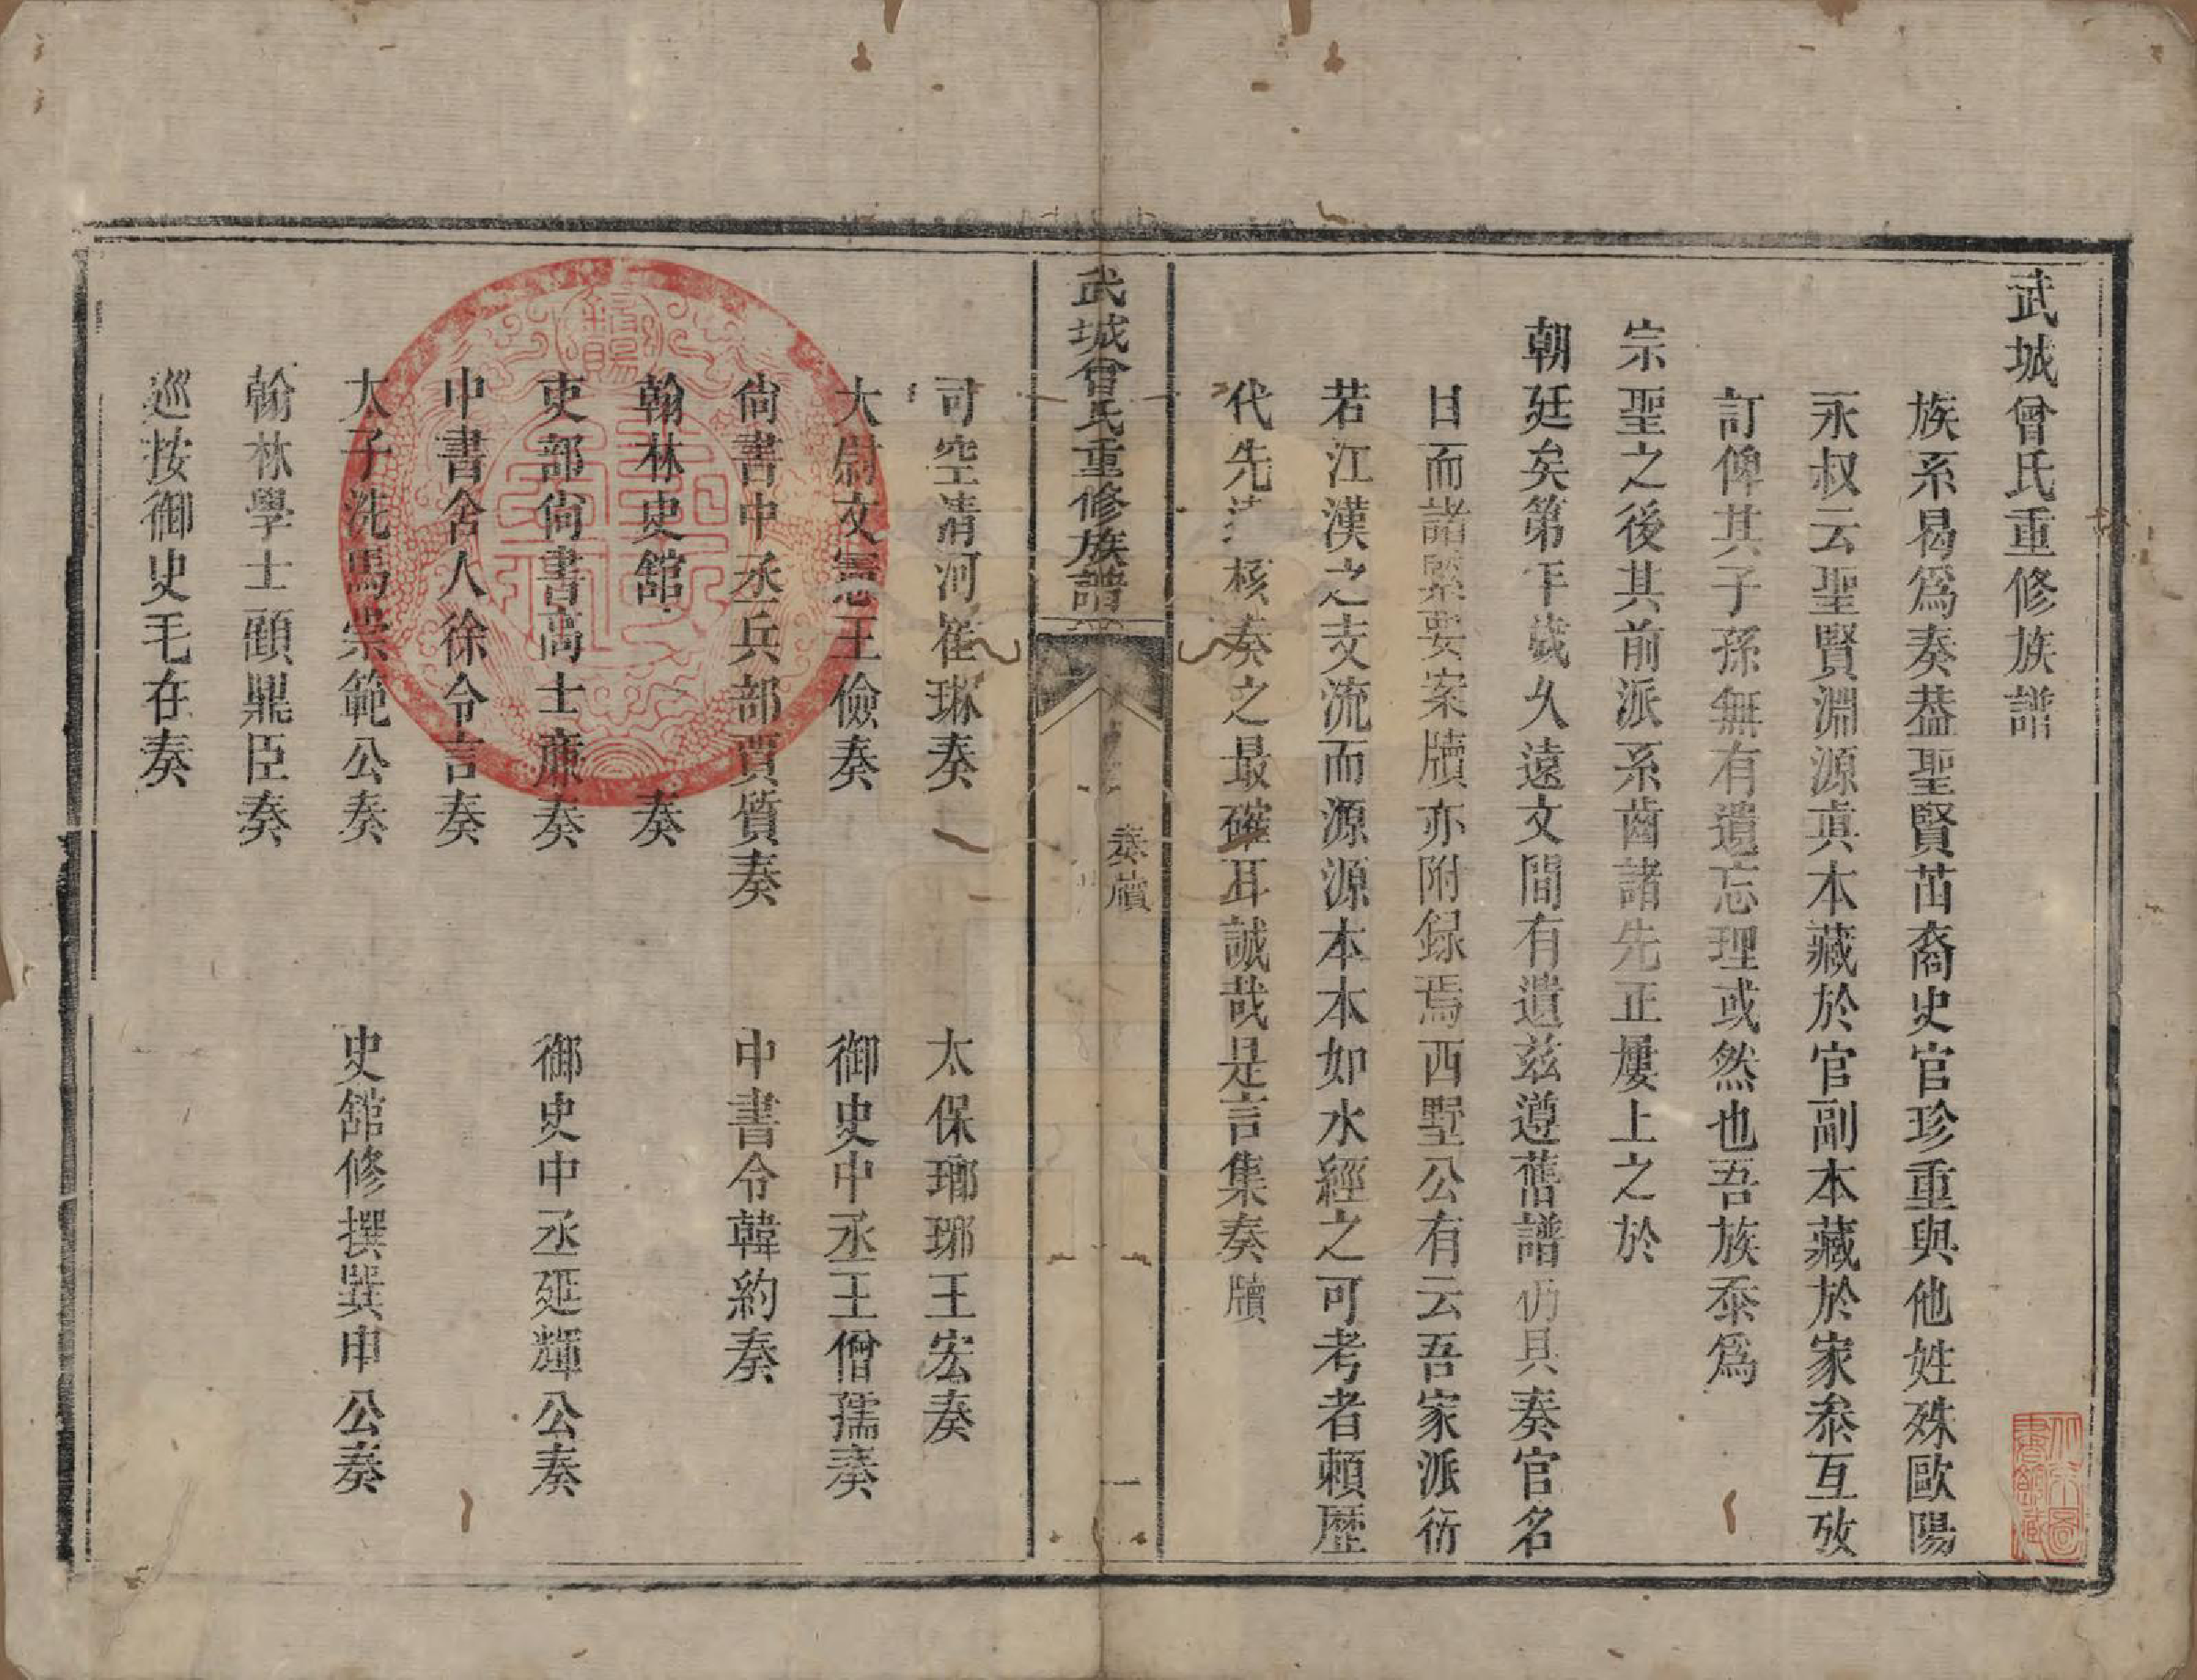 武城曾氏重修族譜
族系曷爲奏葢聖賢苗裔史官珍重與他姓殊歐陽
永叔云聖賢淵源真本藏於官副本藏於家叅互攷
訂俾其子孫無有遺忘理或然也吾族忝爲
宗聖之後其前派系齒諸先正屢上之於
朝廷矣第年歲久遠文間有遺兹遵舊譜仍具奏官名
日而諸緊要案牘亦附録焉西墅公有云吾家派衍
若江漢之支流而源源本本如水經之可考者頼歷
代先 核奏之最確耳誠哉是言集奏牘
武城曾氏重修族譜
奏牘
一
司空清河崔琳奏 太保瑯琊王宏奏
大尉文憲王儉奏 御史中丞王僧孺奏
尙書中丞兵部賈質奏 中書令韓約奏
翰林史舘 奏
吏部尙書高士廉奏 御史中丞延輝公奏
中書舍人徐令言奏
太子洗馬崇範公奏 史舘修撰巽申公奏
翰林學士顧鼎臣奏
巡按御史毛在奏